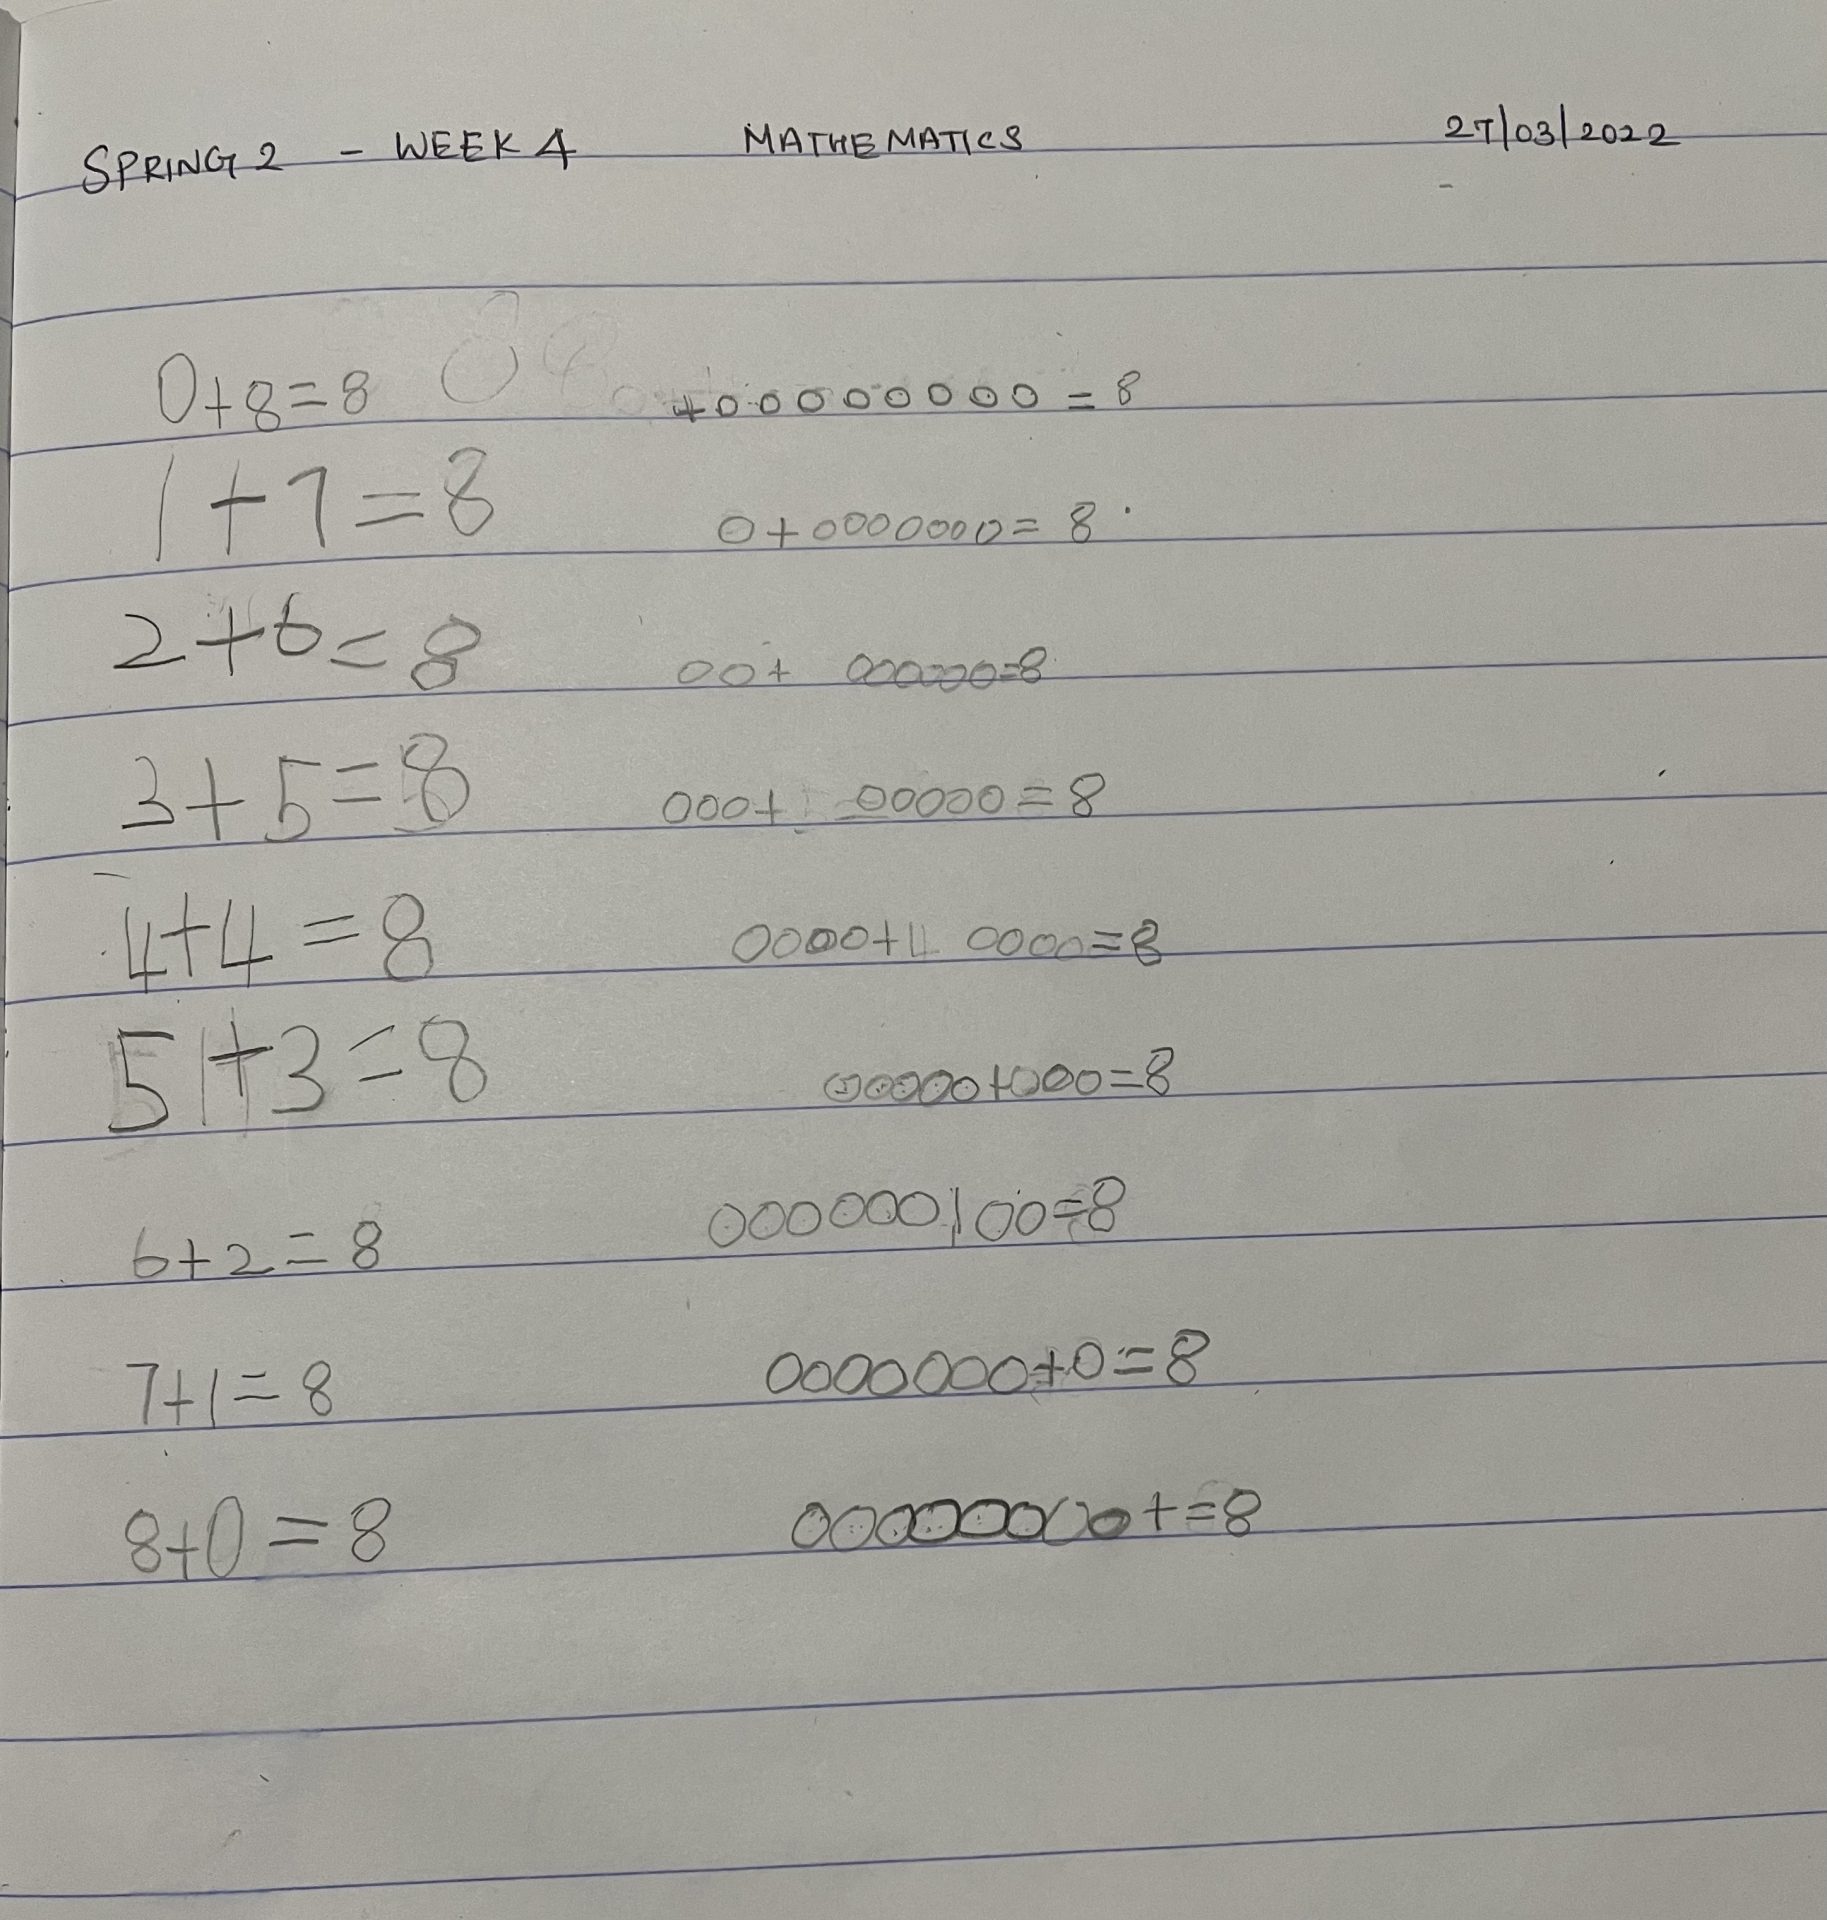 SPRING 2 - WEEK 4 MATHEMATICS 27/03/2022
0+8=8 +00000000=8
1+7=8 0+0000000=8
2+6=8 00+ 000000=8
3+5=8 000+ 00000=8
4+4=8 0000+ 0000=8
5+3=8 00000+000=8
6+2=8 000000|00=8
7+1=8 0000000+0=8
8+0=8 00000000+=8